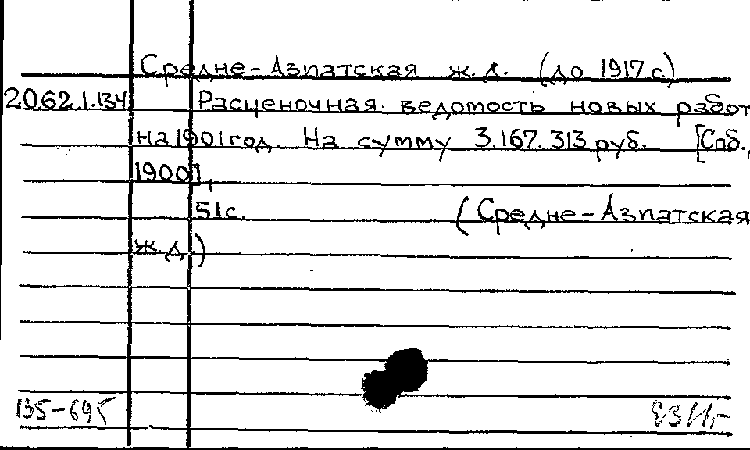 Средне-Азиатская ж.д. (до 1917 г.)
2062.1.134 Расценочная ведомость новых работ
на 1901 год. На сумму 3.167.313 руб. [Спб.,
1900],
51 с. (Средне-Азиатская
ж.д.)
135-695